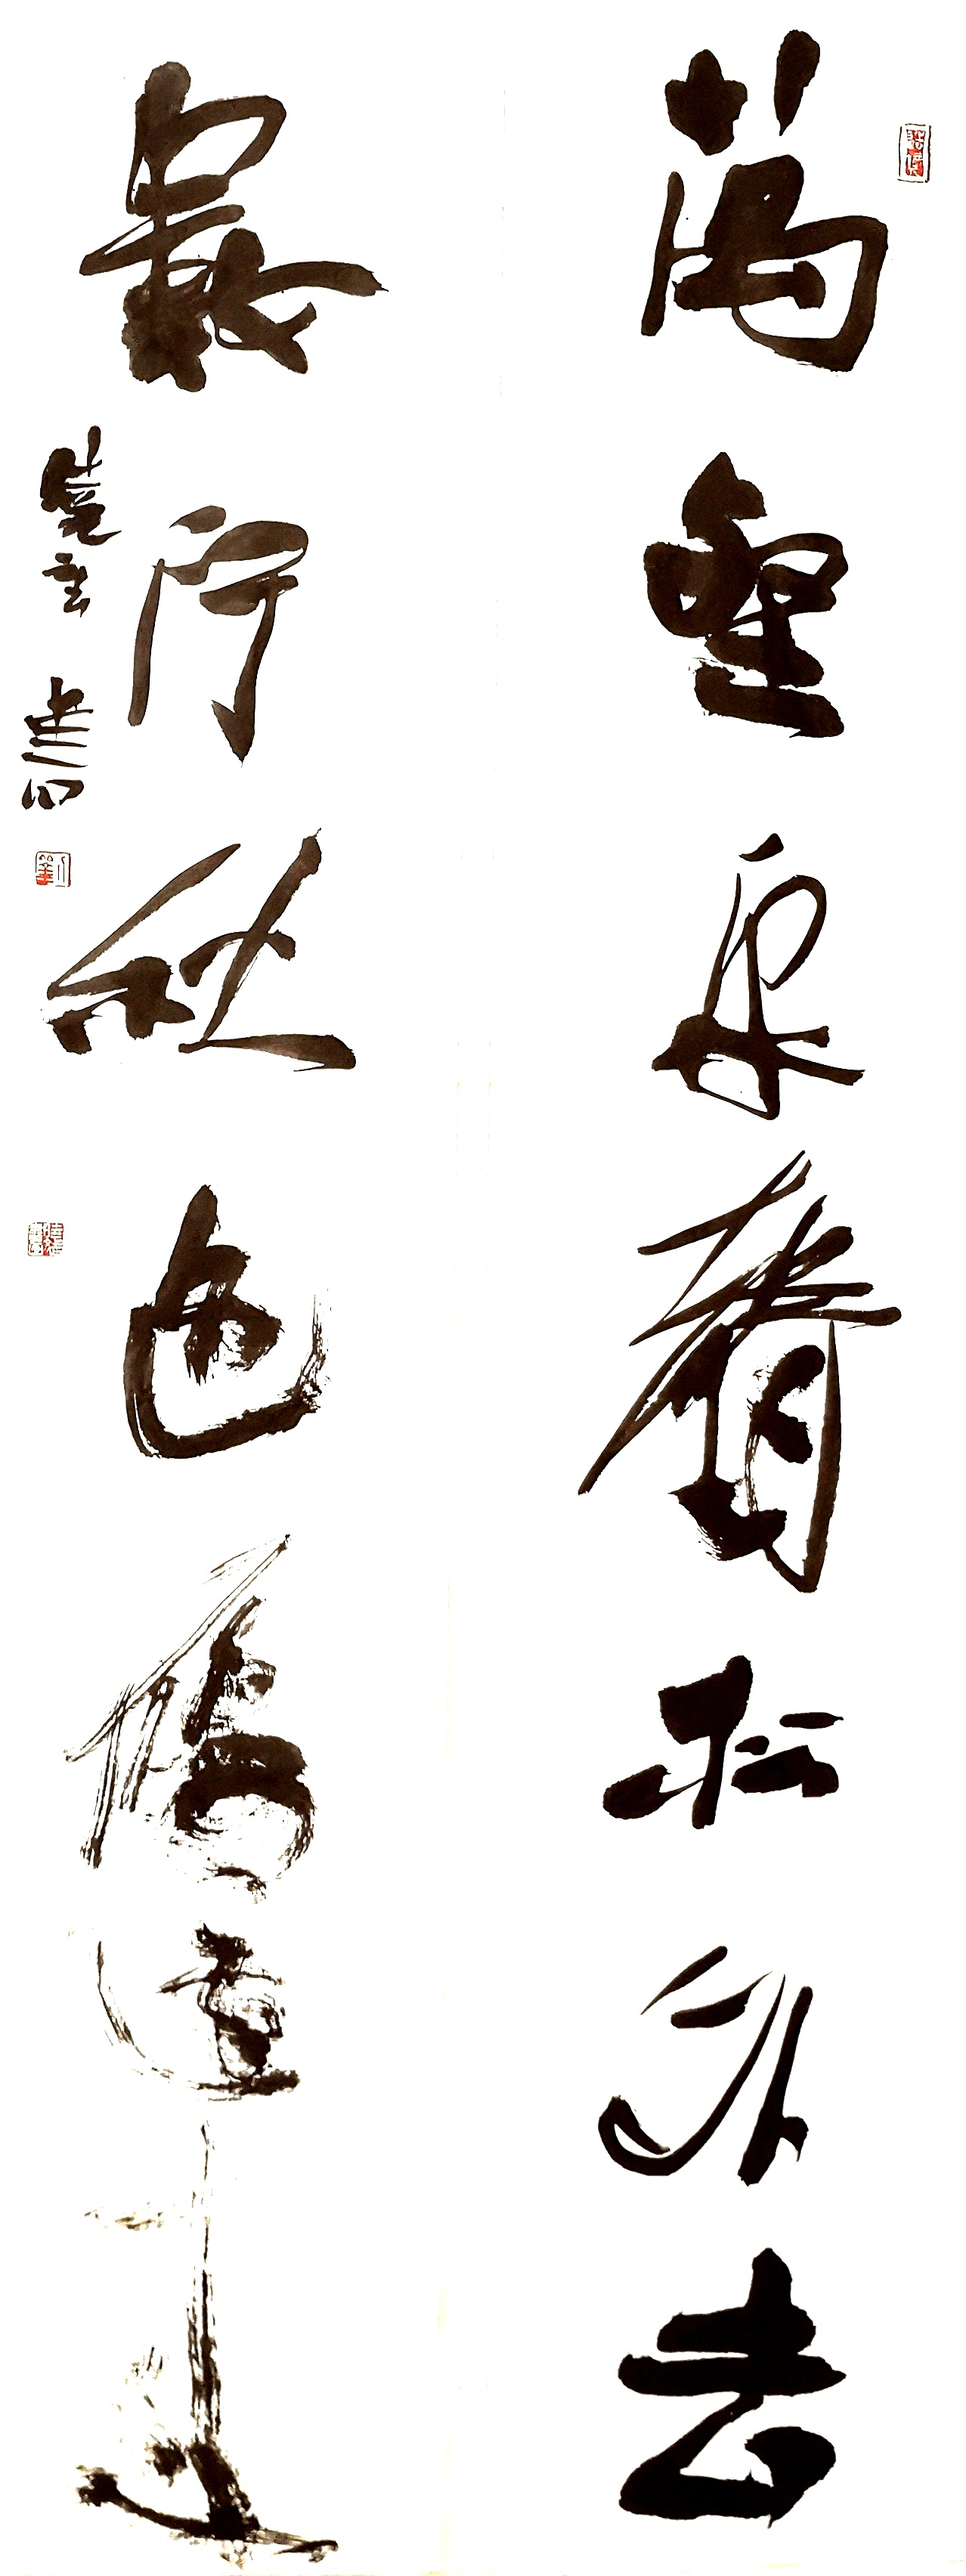 萬壑泉聲松外去
數行秋色鴈邊來